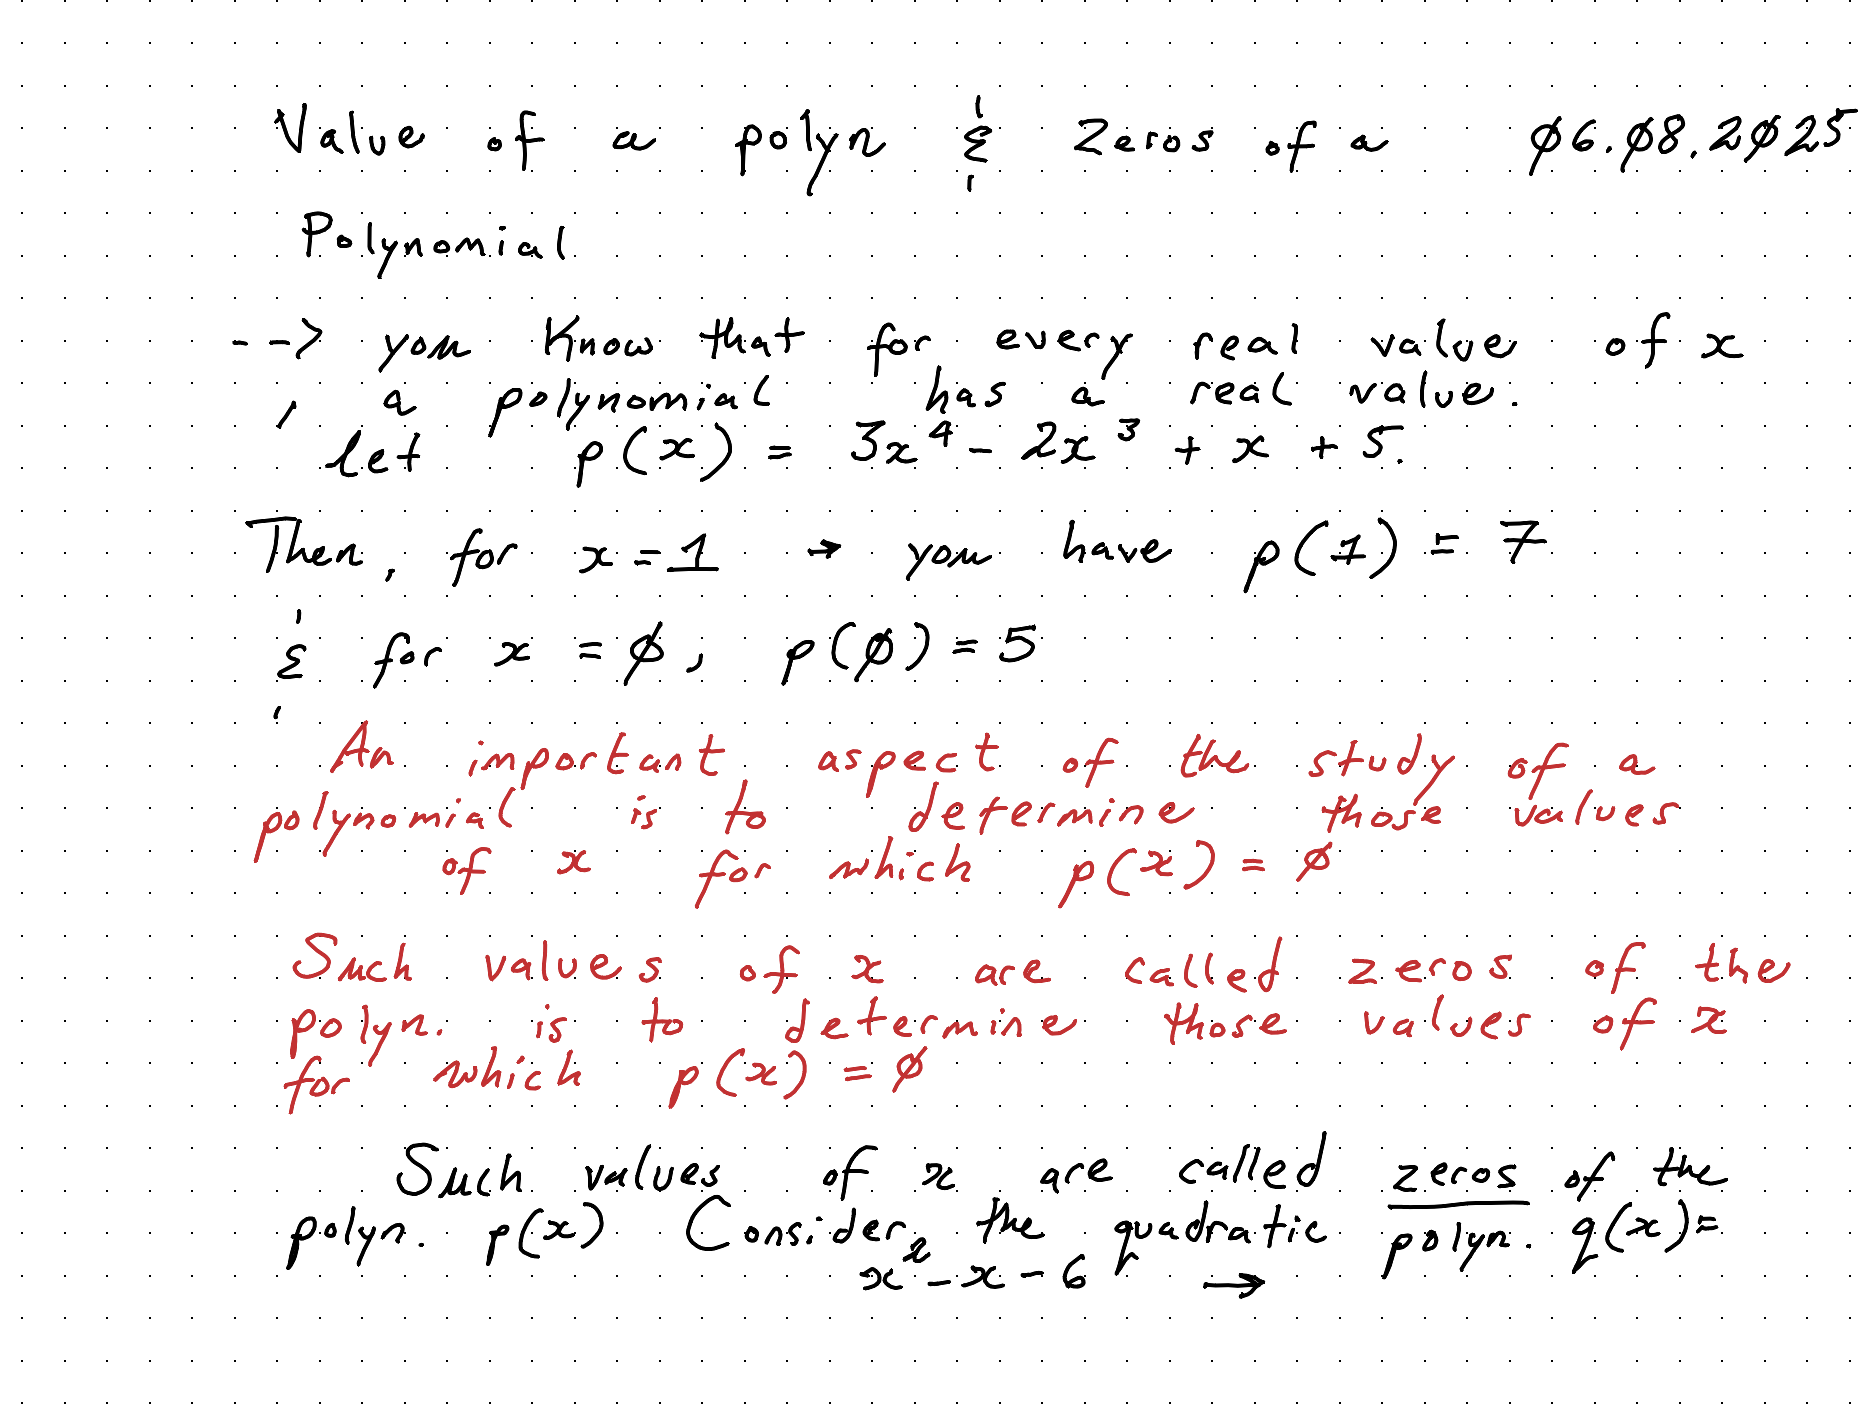 Value of a polyn & Zeros of a 06.08.2025
Polynomial
--> you know that for every real value of x
, a polynomial has a real value.
let p(x) = 3x⁴ - 2x³ + x + 5.
Then, for x = 1 → you have p(1) = 7
& for x = 0, p(0) = 5
An important aspect of the study of a
polynomial is to determine those values
of x for which p(x) = 0
Such values of x are called zeros of the
polyn. is to determine those values of x
for which p(x) = 0
Such values of x are called zeros of the
polyn. p(x) Consider the quadratic polyn. q(x) =
x² - x - 6 →